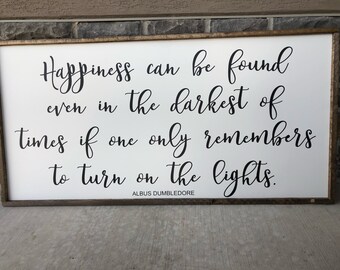 Happiness can be found
even in the darkest of
times if one only remembers
to turn on the lights.
ALBUS DUMBLEDORE